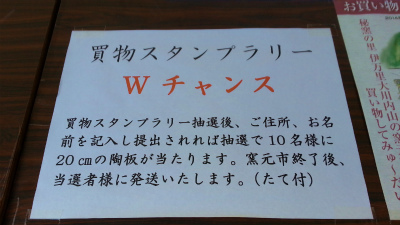 買物スタンプラリー
Wチャンス
買物スタンプラリー抽選後、ご住所、お名
前を記入し提出されれば抽選で10名様に
20㎝の陶板が当たります。窯元市終了後、
当選者様に発送いたします。(たて付)
お買い物
秘窯の里 伊万里大川内山の窯
買い物してみゅ~だい